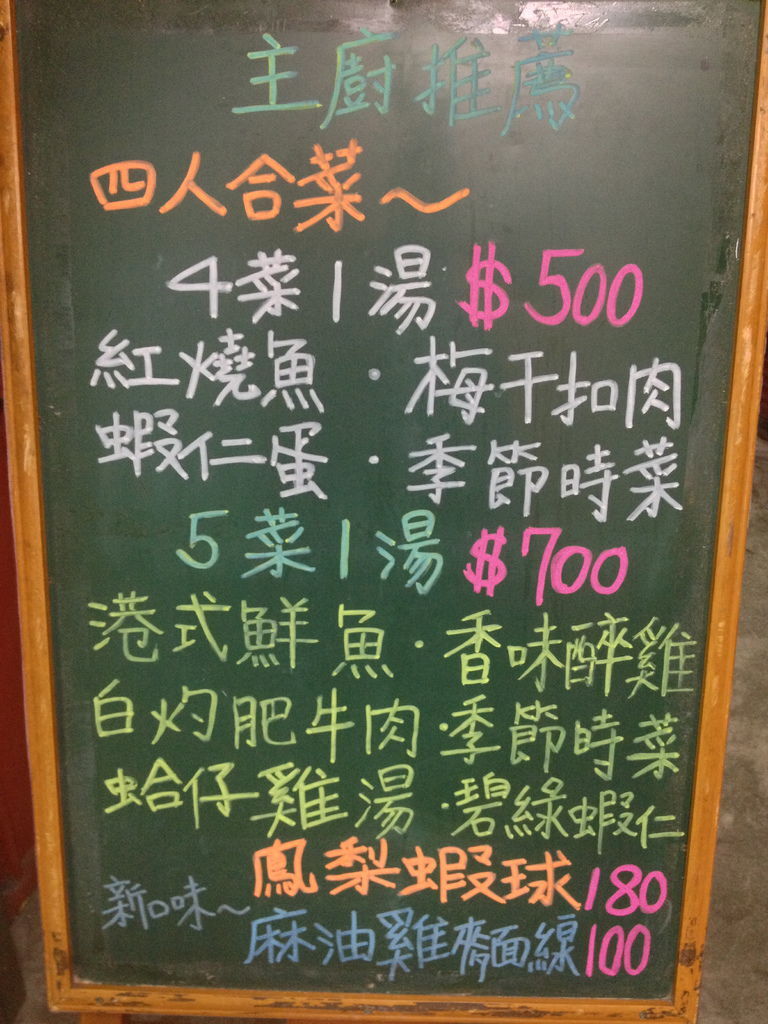 主廚推薦
四人合菜～
4菜1湯 $500
紅燒魚・梅干扣肉
蝦仁蛋・季節時菜
5菜1湯 $700
港式鮮魚・香味醉雞
白灼肥牛肉・季節時菜
蛤仔雞湯・碧綠蝦仁
鳳梨蝦球180
新口味～麻油雞麵線100